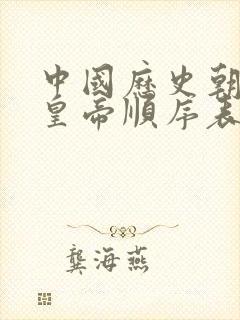 中國歷史朝
皇帝順序表
龔海燕